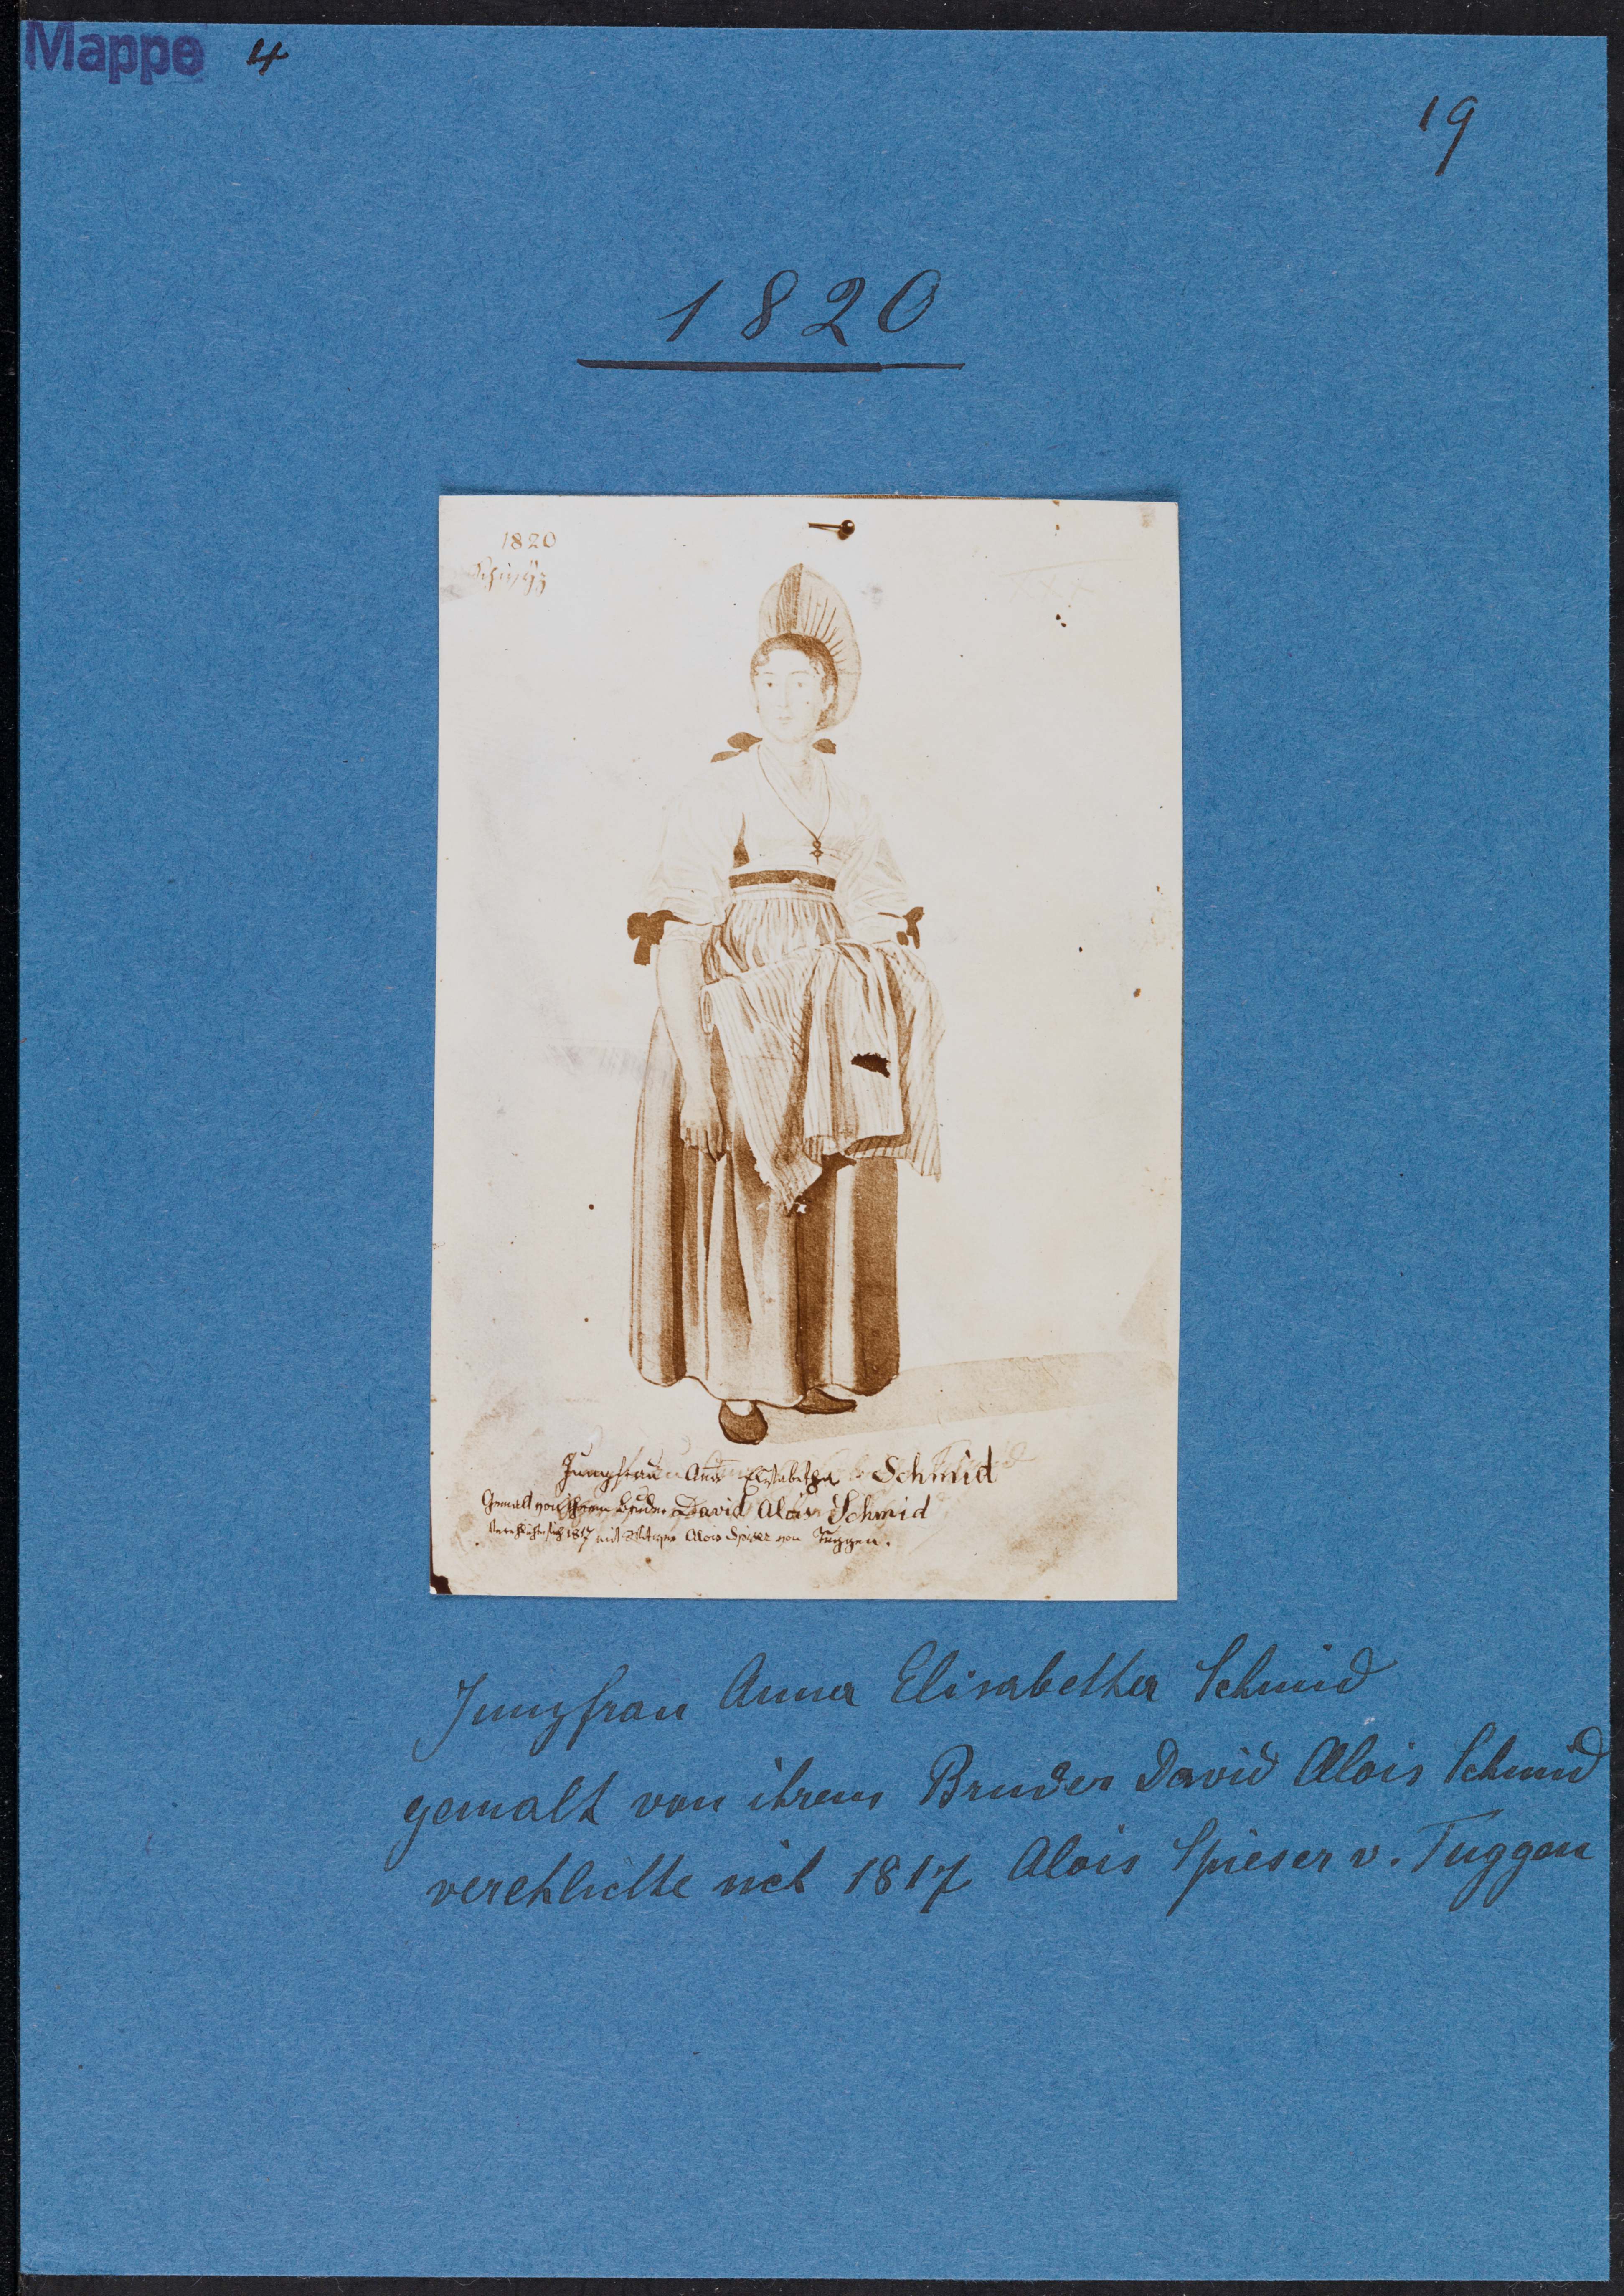 Mappe 4
19
1820
1820
Schwÿz
Jungfrau Ana Elisabetha Schmid
Gemalt von ihrem Bruder David Alois Schmid
Verehlichte sich 1817 mit Alois Spieser von Tuggen.
Jungfrau Anna Elisabetha Schmid
gemalt von ihrem Bruder David Alois Schmid
verehlichte sich 1817 Alois Spieser v. Tuggen